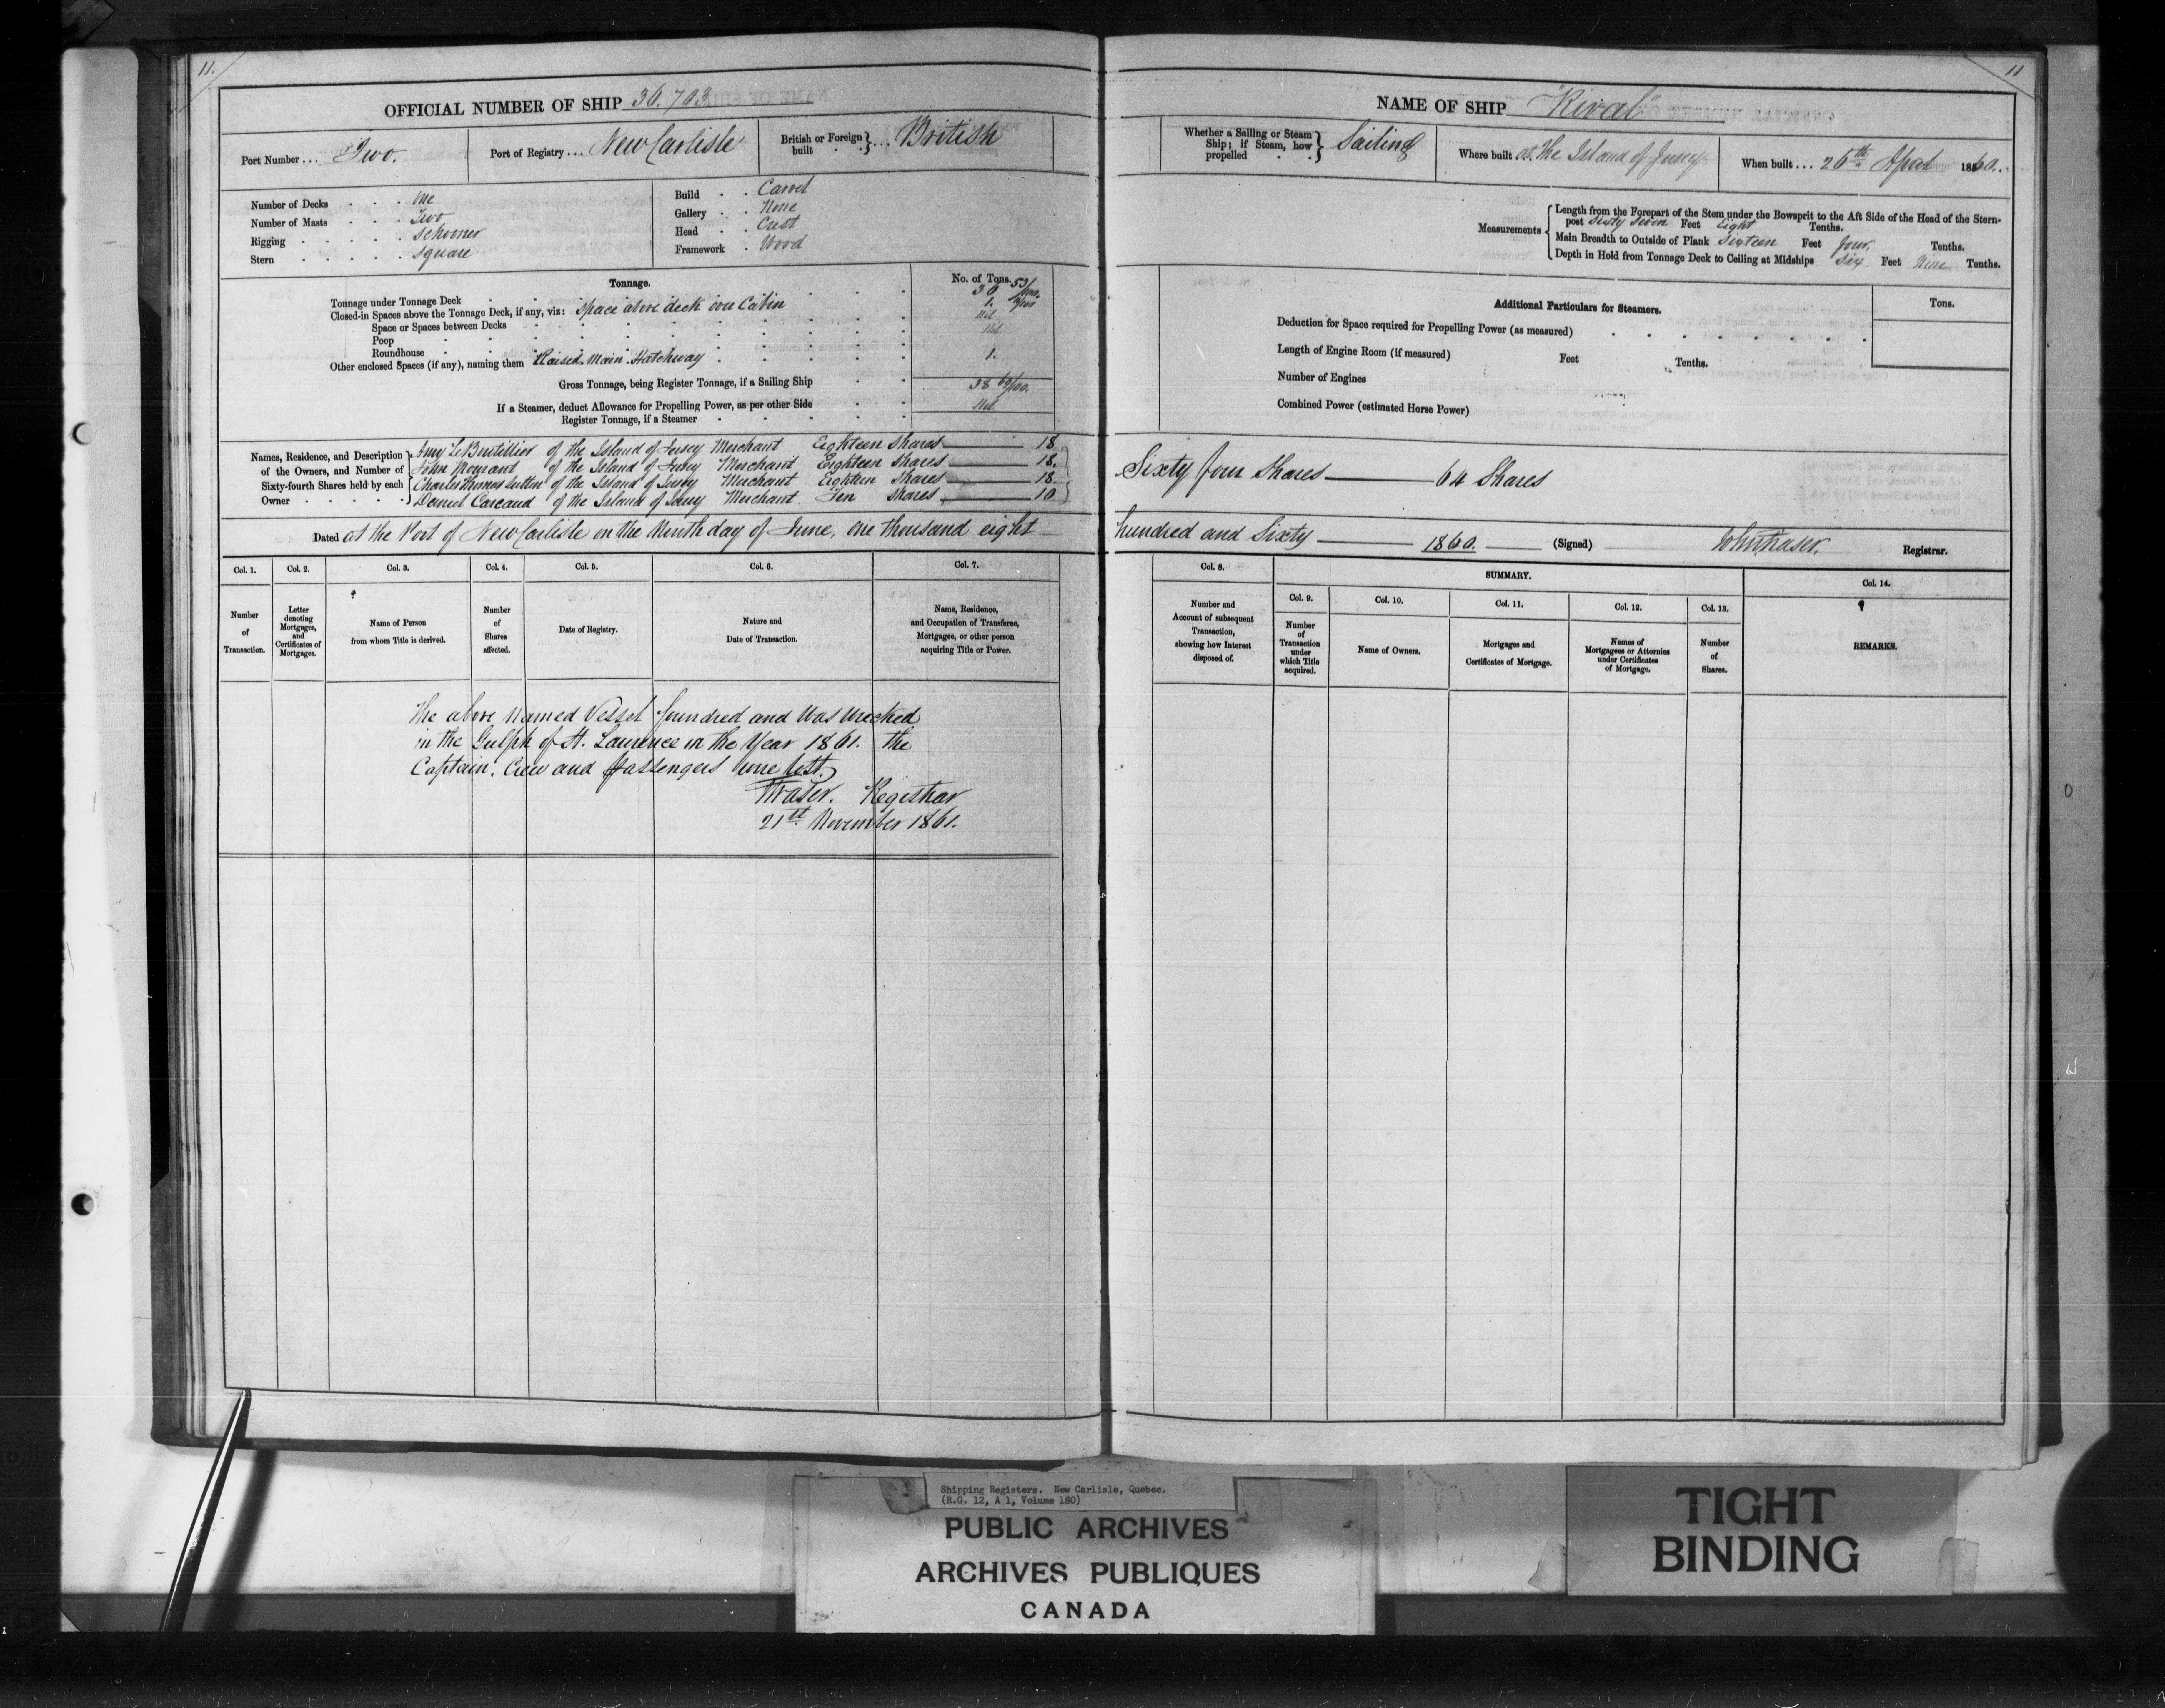 11.
OFFICIAL NUMBER OF SHIP 36.703
Port Number ... Two.
Port of Registry ... New Carlisle
British or Foreign built } ... British
Number of Decks . . . One
Number of Masts . . . Two
Rigging . . . . . Schooner
Stern . . . . . Square
Build . . Carvel
Gallery . . None
Head . . Crest
Framework . Wood
Tonnage.
No. of Tons.
Tonnage under Tonnage Deck 36 53/100.
Closed-in Spaces above the Tonnage Deck, if any, viz: Space above deck over Cabin 1.
Space or Spaces between Decks Nil
Poop Nil
Roundhouse
Other enclosed Spaces (if any), naming them Raised Main Hatchway 1.
Gross Tonnage, being Register Tonnage, if a Sailing Ship 38 60/100.
If a Steamer, deduct Allowance for Propelling Power, as per other Side Nil
Register Tonnage, if a Steamer
Names, Residence, and Description of the Owners, and Number of Sixty-fourth Shares held by each Owner
Amy LeBoutillier of the Island of Jersey Merchant Eighteen Shares 18
John of the Island of Jersey Merchant Eighteen Shares 18.
Charles Thomas Sutton of the Island of Jersey Merchant Eighteen Shares 18
Daniel Carcaud of the Island of Jersey Merchant Ten Shares 10
Dated at the Port of New Carlisle on the Ninth day of June, one thousand eight
Col. 1.
Col. 2.
Col. 3.
Col. 4.
Col. 5.
Col. 6.
Col. 7.
Number of Transaction.
Letter denoting Mortgages, and Certificates of Mortgages.
Name of Person from whom Title is derived.
Number of Shares affected.
Date of Registry.
Nature and Date of Transaction.
Name, Residence, and Occupation of Transferee, Mortgagee, or other person acquiring Title or Power.
The above named Vessel foundred and was wrecked
in the Gulph of St. Laurence in the Year 1861. the
Captain. Crew and passengers were lost.
Fraser. Registrar
21st November 1861.
11
NAME OF SHIP "Rival"
Whether a Sailing or Steam Ship; if Steam, how propelled } Sailing
Where built at the Island of Jersey
When built ... 26th April 1860.
Measurements
Length from the Forepart of the Stem under the Bowsprit to the Aft Side of the Head of the Stern-
post Sixty Seven Feet Eight Tenths.
Main Breadth to Outside of Plank Sixteen Feet four Tenths.
Depth in Hold from Tonnage Deck to Ceiling at Midships Six Feet Nine Tenths.
Additional Particulars for Steamers.
Tons.
Deduction for Space required for Propelling Power (as measured)
Length of Engine Room (if measured) Feet Tenths.
Number of Engines
Combined Power (estimated Horse Power)
Sixty four Shares 64 Shares
hundred and Sixty 1860. (Signed) Jno Fraser. Registrar.
Col. 8.
SUMMARY.
Col. 9.
Col. 10.
Col. 11.
Col. 12.
Col. 13.
Col. 14.
Number and Account of subsequent Transaction, showing how Interest disposed of.
Number of Transaction under which Title acquired.
Name of Owners.
Mortgages and Certificates of Mortgage.
Names of Mortgagees or Attornies under Certificates of Mortgage.
Number of Shares.
REMARKS.
Shipping Registers. New Carlisle, Quebec.
(R.G. 12, A 1, Volume 180)
PUBLIC ARCHIVES
ARCHIVES PUBLIQUES
CANADA
TIGHT
BINDING